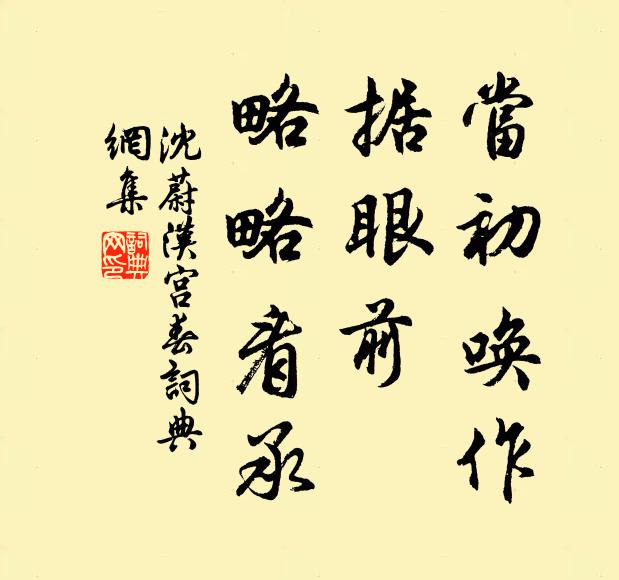 當初喚作
据眼前
略略看承
沈蔚漢宮春詞典
網集
詞典
网印